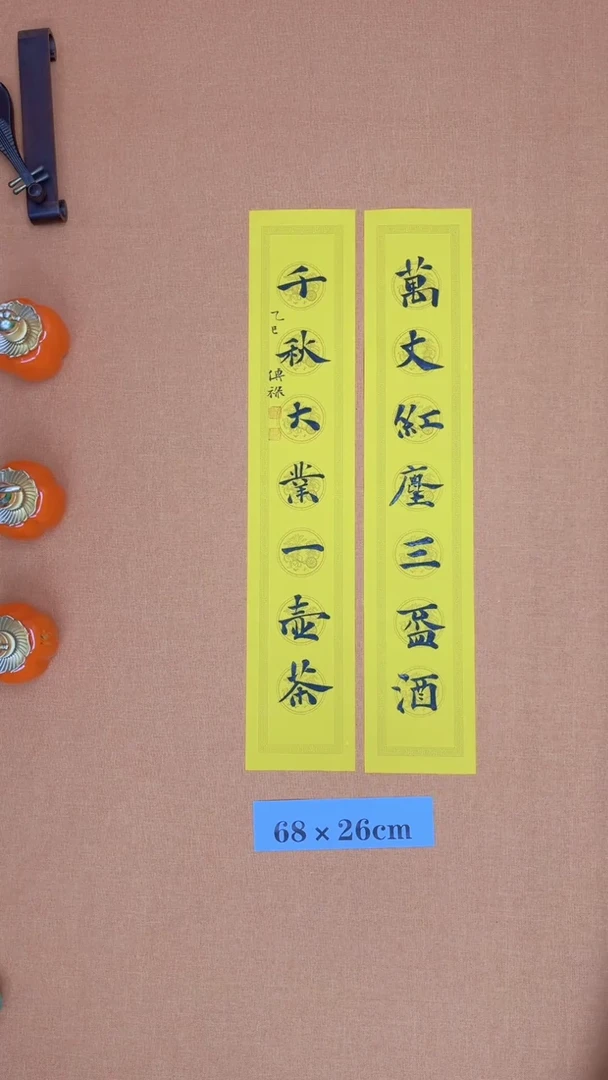 萬丈紅塵三盃酒
千秋大業一壺茶
乙巳 傳祿
68×26cm